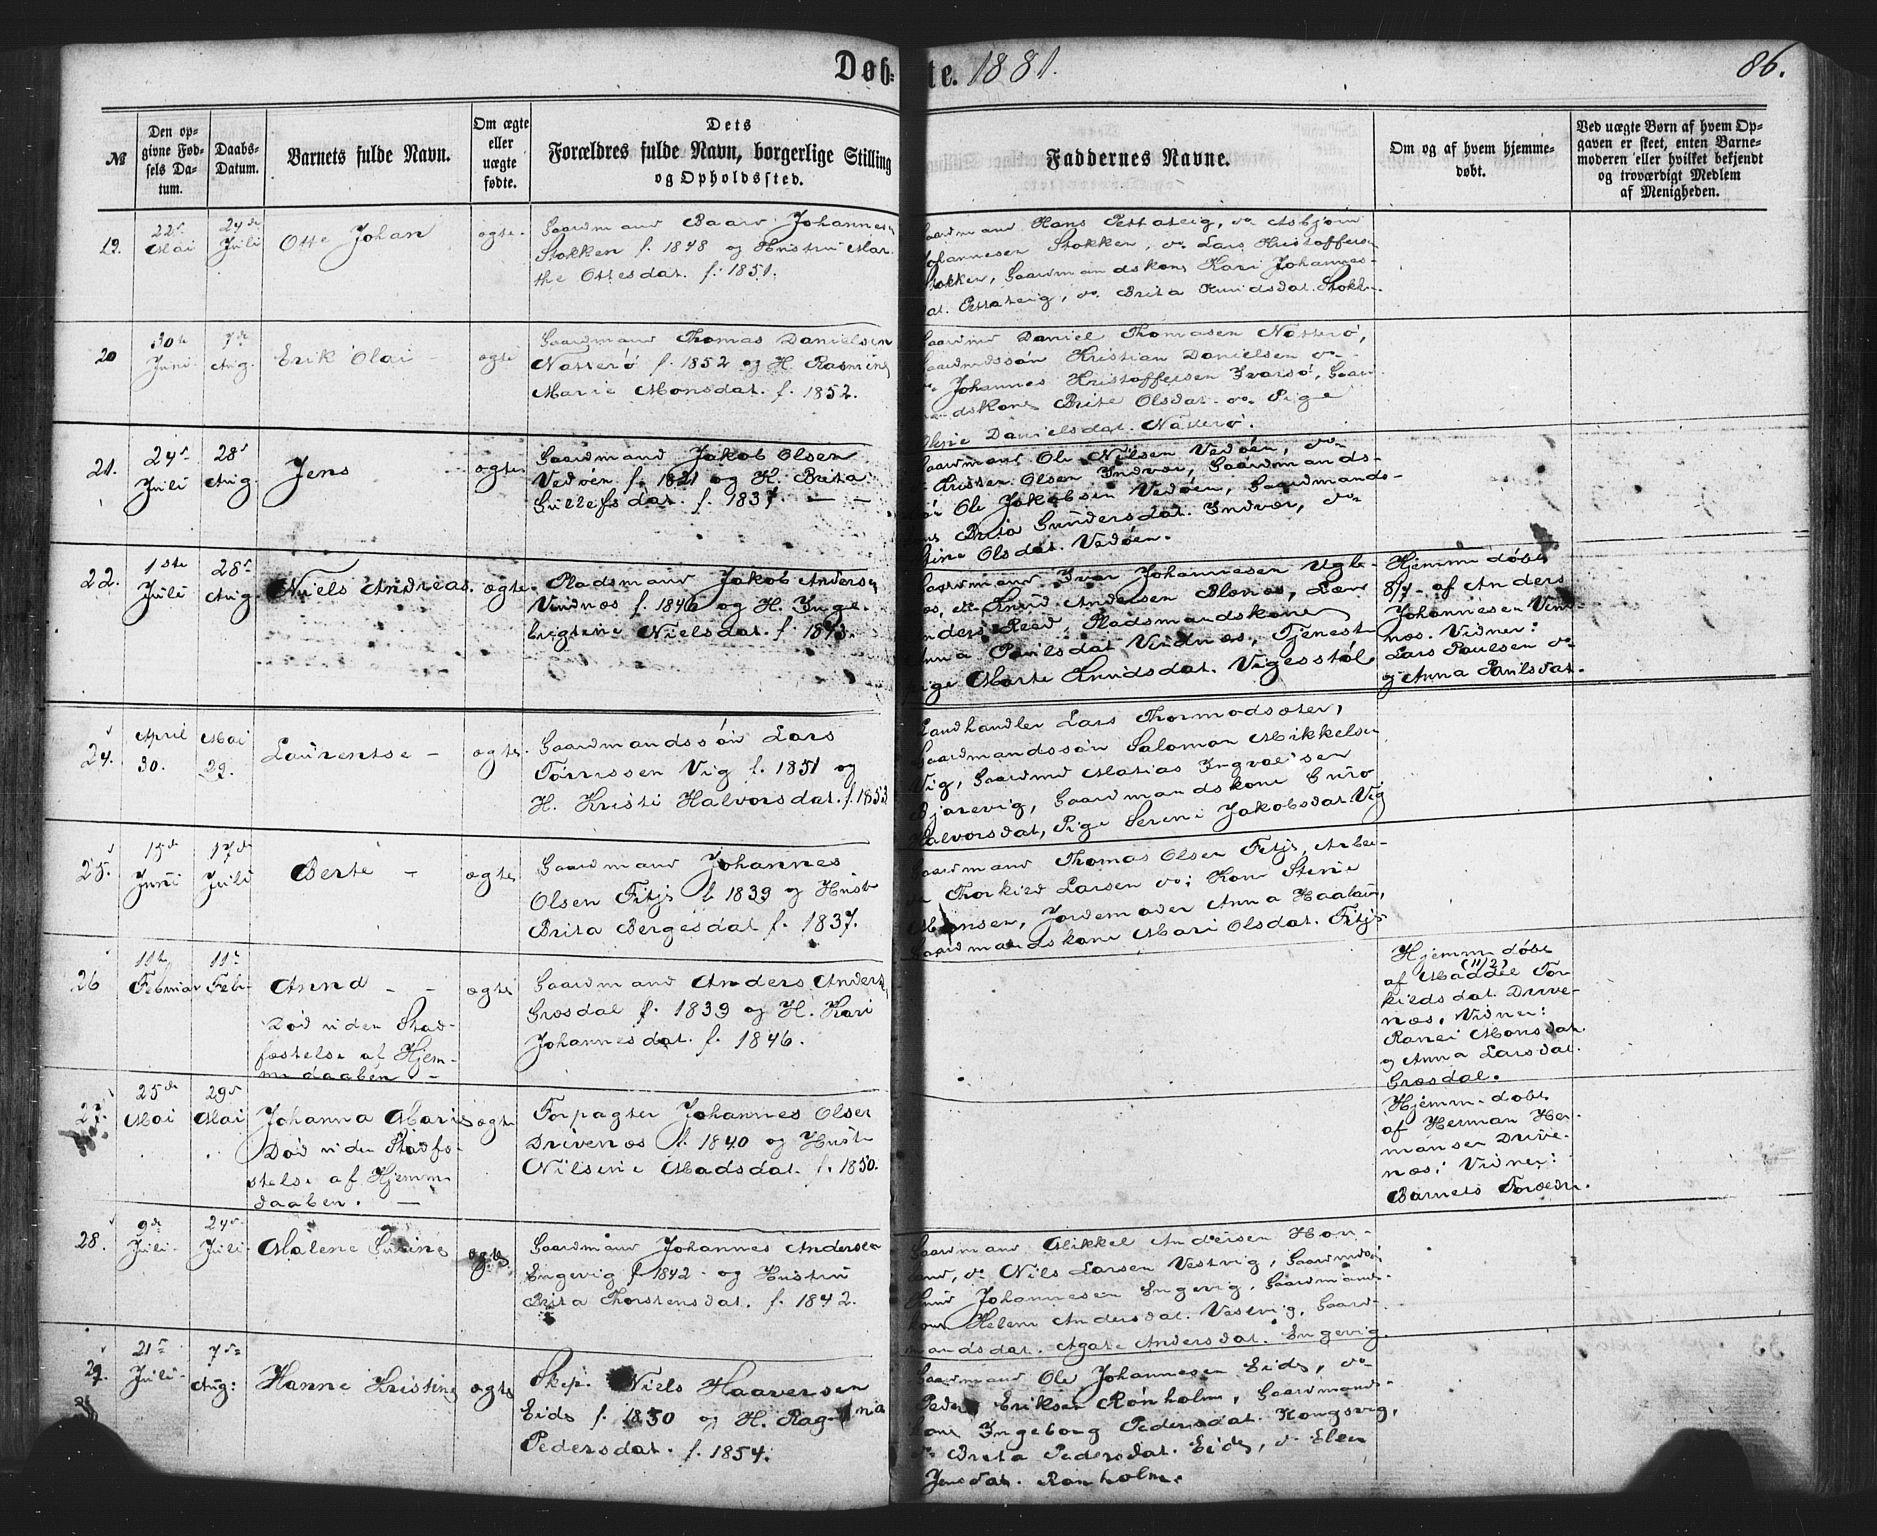 Døb-te. 1881. 86.
№
Den op-
givne Fød-
sels Da-
tum.
Daabs-
Datum.
Barnets fulde Navn.
Om ægte
eller
uægte
fødte.
Dets
Forældres fulde Navn, borgerlige Stilling
og Opholdssted.
Faddernes Navne.
Om og af hvem hjemme-
døbt.
Ved uægte Børn af hvem Op-
gaven er skeet, enten Barne-
moderen eller hvilket bekjendt
og troværdigt Medlem
af Menigheden.
19.
22de
Mai
24de
Juli
Otte Johan
ægte
Gaardmand Baar Johannes
Stokken f. 1848 og Hustru Mar
the Ottesdat. f. 1851.
Gaardmand Hans Pettateig, do Asbjørn
Johannesen Stokken, do Lars Kristoffersen
Stokken, Gaardmandskone Kari Johannes-
dat. Pettateig, do Brita Knudsdat. Stokk
20
30te
Juni
7de
Aug.
Erik Olai
ægte
Gaardmand Thomas Danielsen
Natterø f. 1852 og H. Rasmine
Marie Monsdat. f. 1852.
Gaardmd Daniel Thomasen Natterø,
Gaardmdssøn Kristian Danielsen do
do Johannes Kristoffersen Ivarsø, Gaar
dskone Brite Olsdat. do Pige
Danielsdat. Natterø.
21.
24de
Juli
28de
Aug.
Jens
ægte
Gaardmand Jakob Olsen
Vedøen f. 1821 og H. Brita
Gullefsdat. f. 1837 — —
Gaardmand Ole Nilsen Vedøen, do
Kristen Olsen Indvær, Gaardmands-
Ole Jakobsen Vedøen, Gaardmands-
Brita Gundersdat. Indvær, do
Stine Olsdat. Vedøen.
22.
1ste
Juli
28de
Aug.
Niels Andreas
ægte
Pladsmand Jakob Anders
Vindnæs f. 1846 og H. Inge-
brigtine Nielsdat. f. 1843.
Gaardmand Ivar Johannesen Ugle
næs, do Knud Andersen Blænæs, Lær
Anders Reed, Pladsmandskone
Anna Paulsdat Vindnæs, Tjeneste
pige Marte Knudsdat. Vigesstøl
Hjemmedøbt
8/7 af Anders
Johannesen Vin
næs. Vidner:
Lars Paulsen do
og Anna Paulsdat.
24.
April
30.
Mai
29.
Laurentse —
ægte
Gaardmandssøn Lars
Tørrissen Vig f. 1851 og
H. Kristi Halvorsdat. f. 1853
Landhandler Lars Thormodsæter,
Gaardmandssøn Salomon Mikkelsen
Vig, Gaardmd Matias Ingvalsen
Bjarevig, Gaardmandskone Guro
Halvorsdat, Pige Serine Jakobsdat. Vig
25.
15de
Juni
17de
Juli
Berte —
ægte
Gaardmand Johannes
Olsen Fitje f. 1839 og Hust
Brita Bergesdat f. 1837.
Gaardmand Thomas Olsen Fitje, Arbei-
Thorkild Larsen do; Kone Stine
Monsen, Jordemoder Anna Haaland,
Gaardmandskone Mari Olsdat. Fitje
26
11te
Februar
11te
Febr.
Aund — —
Død uden Stad-
fæstelse af Hjem-
medaaben —
ægte
Gaardmand Anders Anders
Grosdal f. 1839 og H. Kari
Johannesdat. f. 1846.
Hjemmedøbt
(11/2)
af Maddel Tor-
kildsdat. Drive-
næs, Vidner:
Ranei Monsdat.
og Anna Larsdat.
Græsdal.
27.
25de
Mai
29de
Mai
Johanna Marie
Død uden Stadfæ-
stelse af Hjemme
daaben. —
ægte
Forpagter Johannes Olsen
Drivenæs f. 1840 og Hust
Nilsine Madsdat. f. 1850.
Hjemmedøbt
af Herman Her-
mansen Drive-
næs; Vidner:
Barnets Foræ
28.
9de
Juli
24de
Juli
Malene Gurine
ægte
Gaardmand Johannes Andersen
Engevig f. 1842 og Hustru
Brita Thorstensdat. f. 1842.
Gaardmand Mikkel Andersen Hov-
land, do Nils Larsen Vestvig, Gaardmdssøn
Knud Johannesen Engevig, Gaardmands-
kone Helene Andersdat. Vestvig, Gaard-
mandsdat. Agate Andersdat. Engevig
29.
21de
Juli
7de
Aug:
Hanne Kristine
ægte
Skip. Niels Haaversen
Eide f. 1850 og H. Ragna
Pedersdat. f. 1854.
Gaardmand Ole Johannesen Eide, do
Peder Eriksen Rønholm, Gaardmands-
kone Ingeborg Pedersdat. Kongsvig,
do Brita Pedersdat. Eide, do Elen
Jensdat. Rønholm.